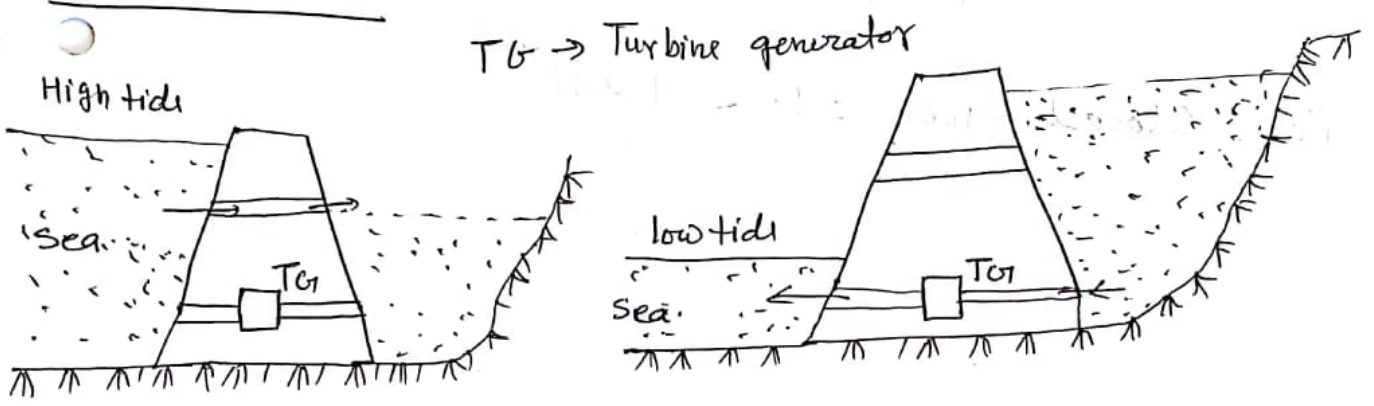 TG → Turbine generator
High tide
Sea.
TG
low tide
Sea.
TG